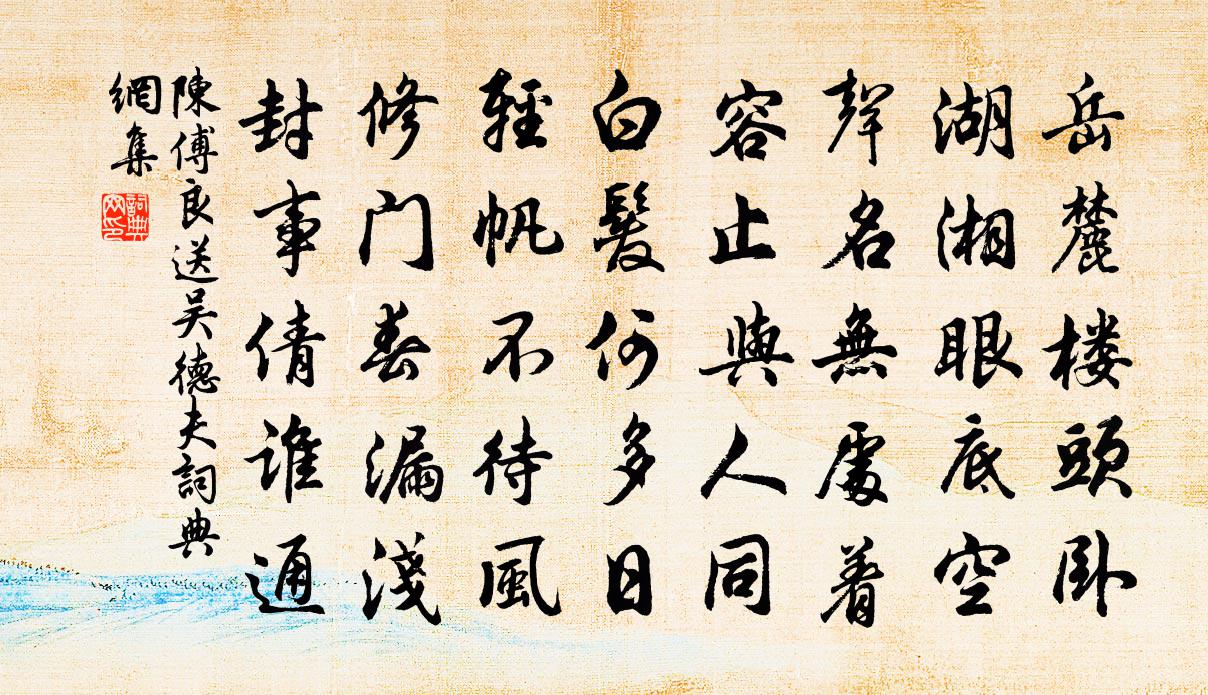 岳麓楼頭卧
湖湘眼底空
聲名無處着
容止與人同
白髮何多日
輕帆不待風
修门春漏淺
封事倩誰通
陳傅良送吴德夫詞典
網集
詞典
网印